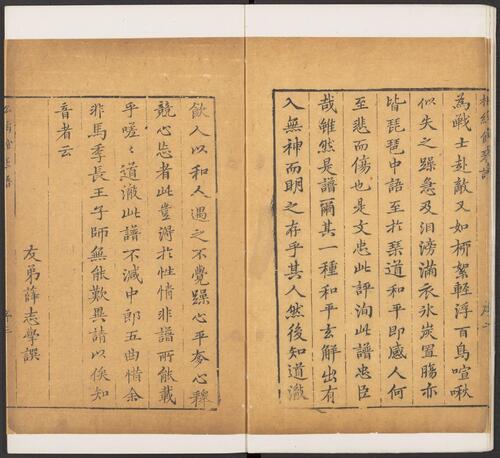 為戰士赴敵又如栁絮輕浮百鳥喧啾
似失之躁急及泪滂滿衣氷炭置膓亦
皆琵琶中語至於琴道和平即感人何
至悲而傷也是文忠此評洵此譜忠臣
哉雖然是譜爾其一種和平玄解出有
入無神而明之存乎其人然後知道澈
飲人以和人遇之不覺躁心平矜心釋
競心忘者此豈得於性情非譜所能載
乎嗟〻道澈此譜不減中郎五曲惜余
非馬季長王子師無能歎異請以俟知
音者云
友弟薛志學譔